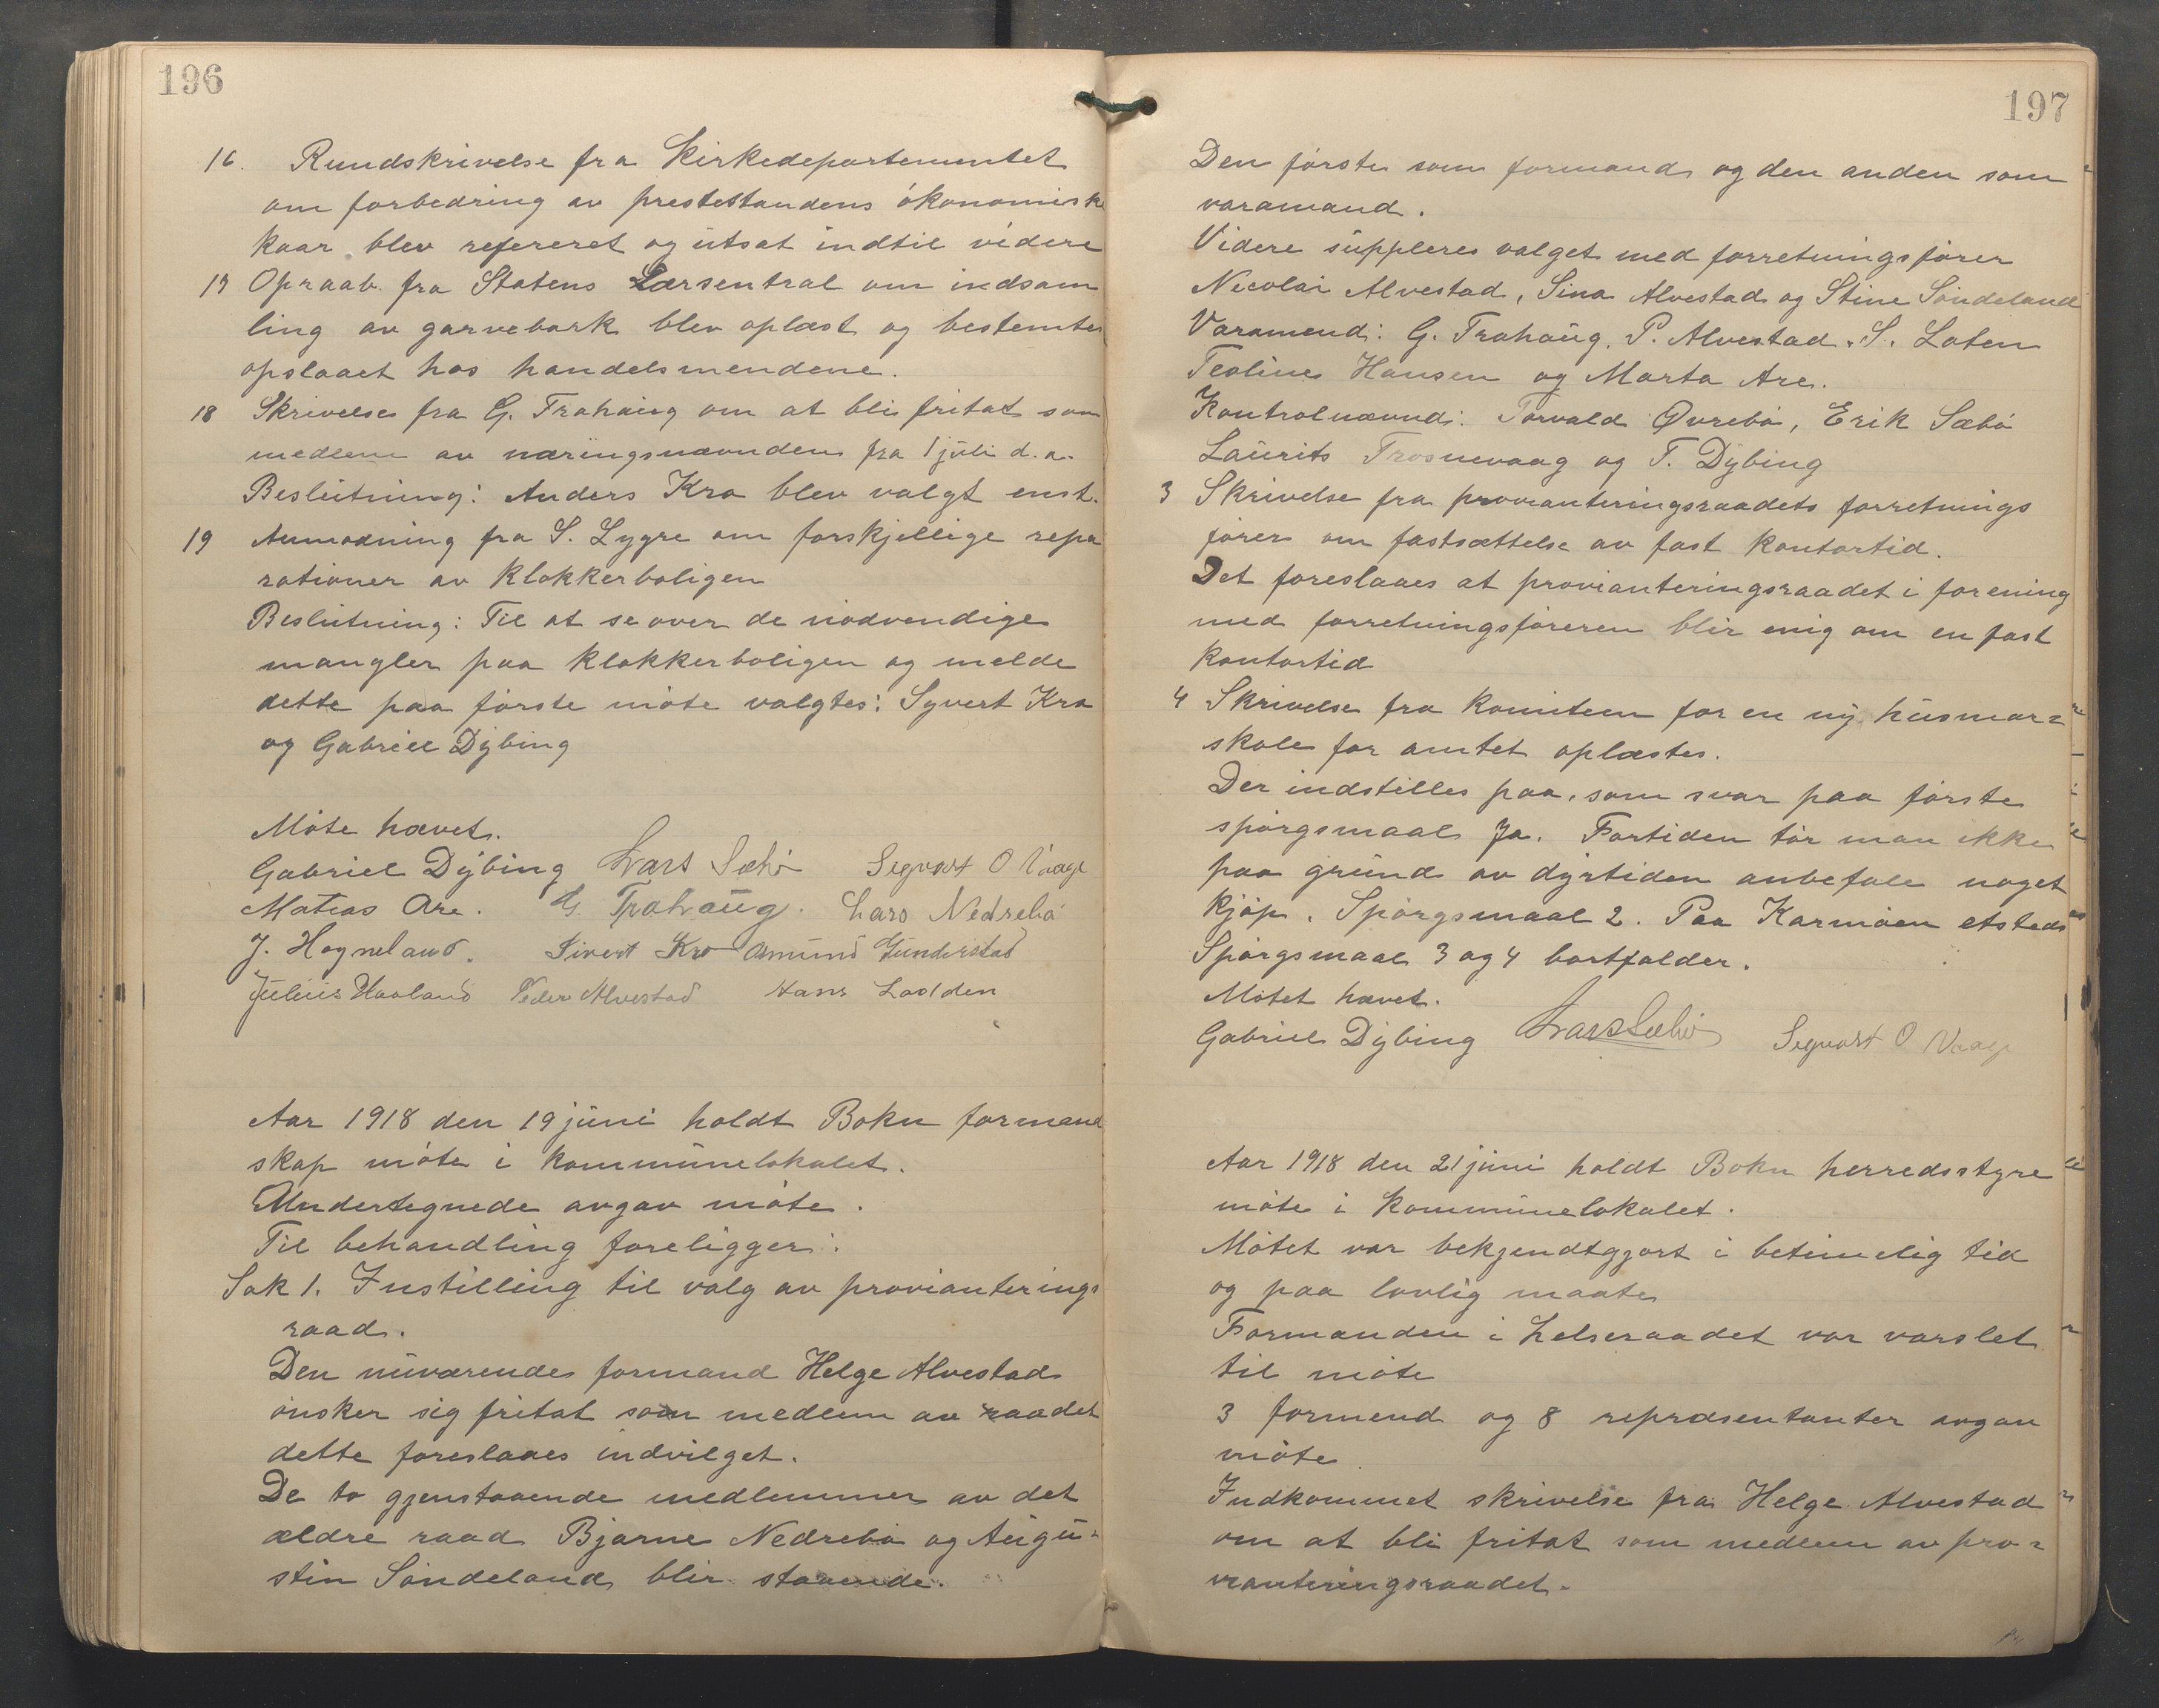 196
16. Rundskrivelse fra Kirkedepartementet
om forbedring av prestestandens økonomiske
kaar blev refereret og utsat indtil videre
17 Opraab fra Statens Lærsentral om indsam
ling av garvebark blev oplæst og bestemtes
opslaaet hos handelsmendene.
18 Skrivelse fra G. Trohaug om at bli fritat som
medlem av næringsnævnden fra 1 juli d.a.
Beslutning: Anders Kro blev valgt enst.
19 Anmodning fra S. Lygre om forskjellige repa
rationer av klokkerboligen
Beslutning: Til at se over de nødvendige
mangler paa klokkerboligen og melde
dette paa første møte valgtes: Syvert Kro
og Gabriel Dybing
Møte hævet.
Gabriel Dybing Lars Sæbø Segvart O Vaage
Matias Are. G. Trohaug. Lars Nedrebø
J. Hogneland. Sivert Kro Amund Gunderstad
Julius Haaland Peder Alvestad Hans Lodden
Aar 1918 den 19 juni holdt Bokn formand
skap møte i kommunelokalet.
Undertegnede avgav møte.
Til behandling foreligger:
Sak 1. Instilling til valg av provianterings
raad.
Den nuværende formand Helge Alvestad
ønsker sig fritat som medlem av raadet
dette foreslaaes indvilget.
De to gjenstaaende medlemmer av det
ældre raad Bjarne Nedrebø og Augu-
stin Søndeland blir staaende.
197
Den første som formand og den anden som
varamand.
Videre suppleres valget med forretningsfører
Nicolai Alvestad, Sina Alvestad og Stine Søndeland
Varamend: G. Trohaug, P. Alvestad, S. Loten
Teoline Hansen og Marta Are.
Kontrolnævnd: Torvald Øvrebø, Erik Sæbø
Laurits Trosnevaag og T. Dybing
3 Skrivelse fra provianteringsraadets forretnings
fører om fastsættelse av fast kontortid.
Det foreslaaes at provianteringsraadet i forening
med forretningsføreren blir enig om en fast
kontortid
4 Skrivelse fra komiteen for en ny husmor=
skole for amtet oplæstes.
Der indstilles paa, som svar paa første
spørgsmaal Ja. Fortiden tør man ikke
paa grund av dyrtiden anbefale noget
kjøp. Spørgsmaal 2. Paa Karmøen etsteds
Spørgsmaal 3 og 4 bortfalder.
Møtet hævet.
Gabriel Dybing Lars Sæbø Segvart O Vaage
Aar 1918 den 21 juni holdt Bokn herredsstyre
møte i kommunelokalet.
Møtet var bekjendtgjort i betimelig tid
og paa lovlig maate
Formanden i helseraadet var varslet
til møte
3 formend og 8 repræsentanter avgav
møte.
Indkommet skrivelse fra Helge Alvestad
om at bli fritat som medlem av pro=
vianteringsraadet.